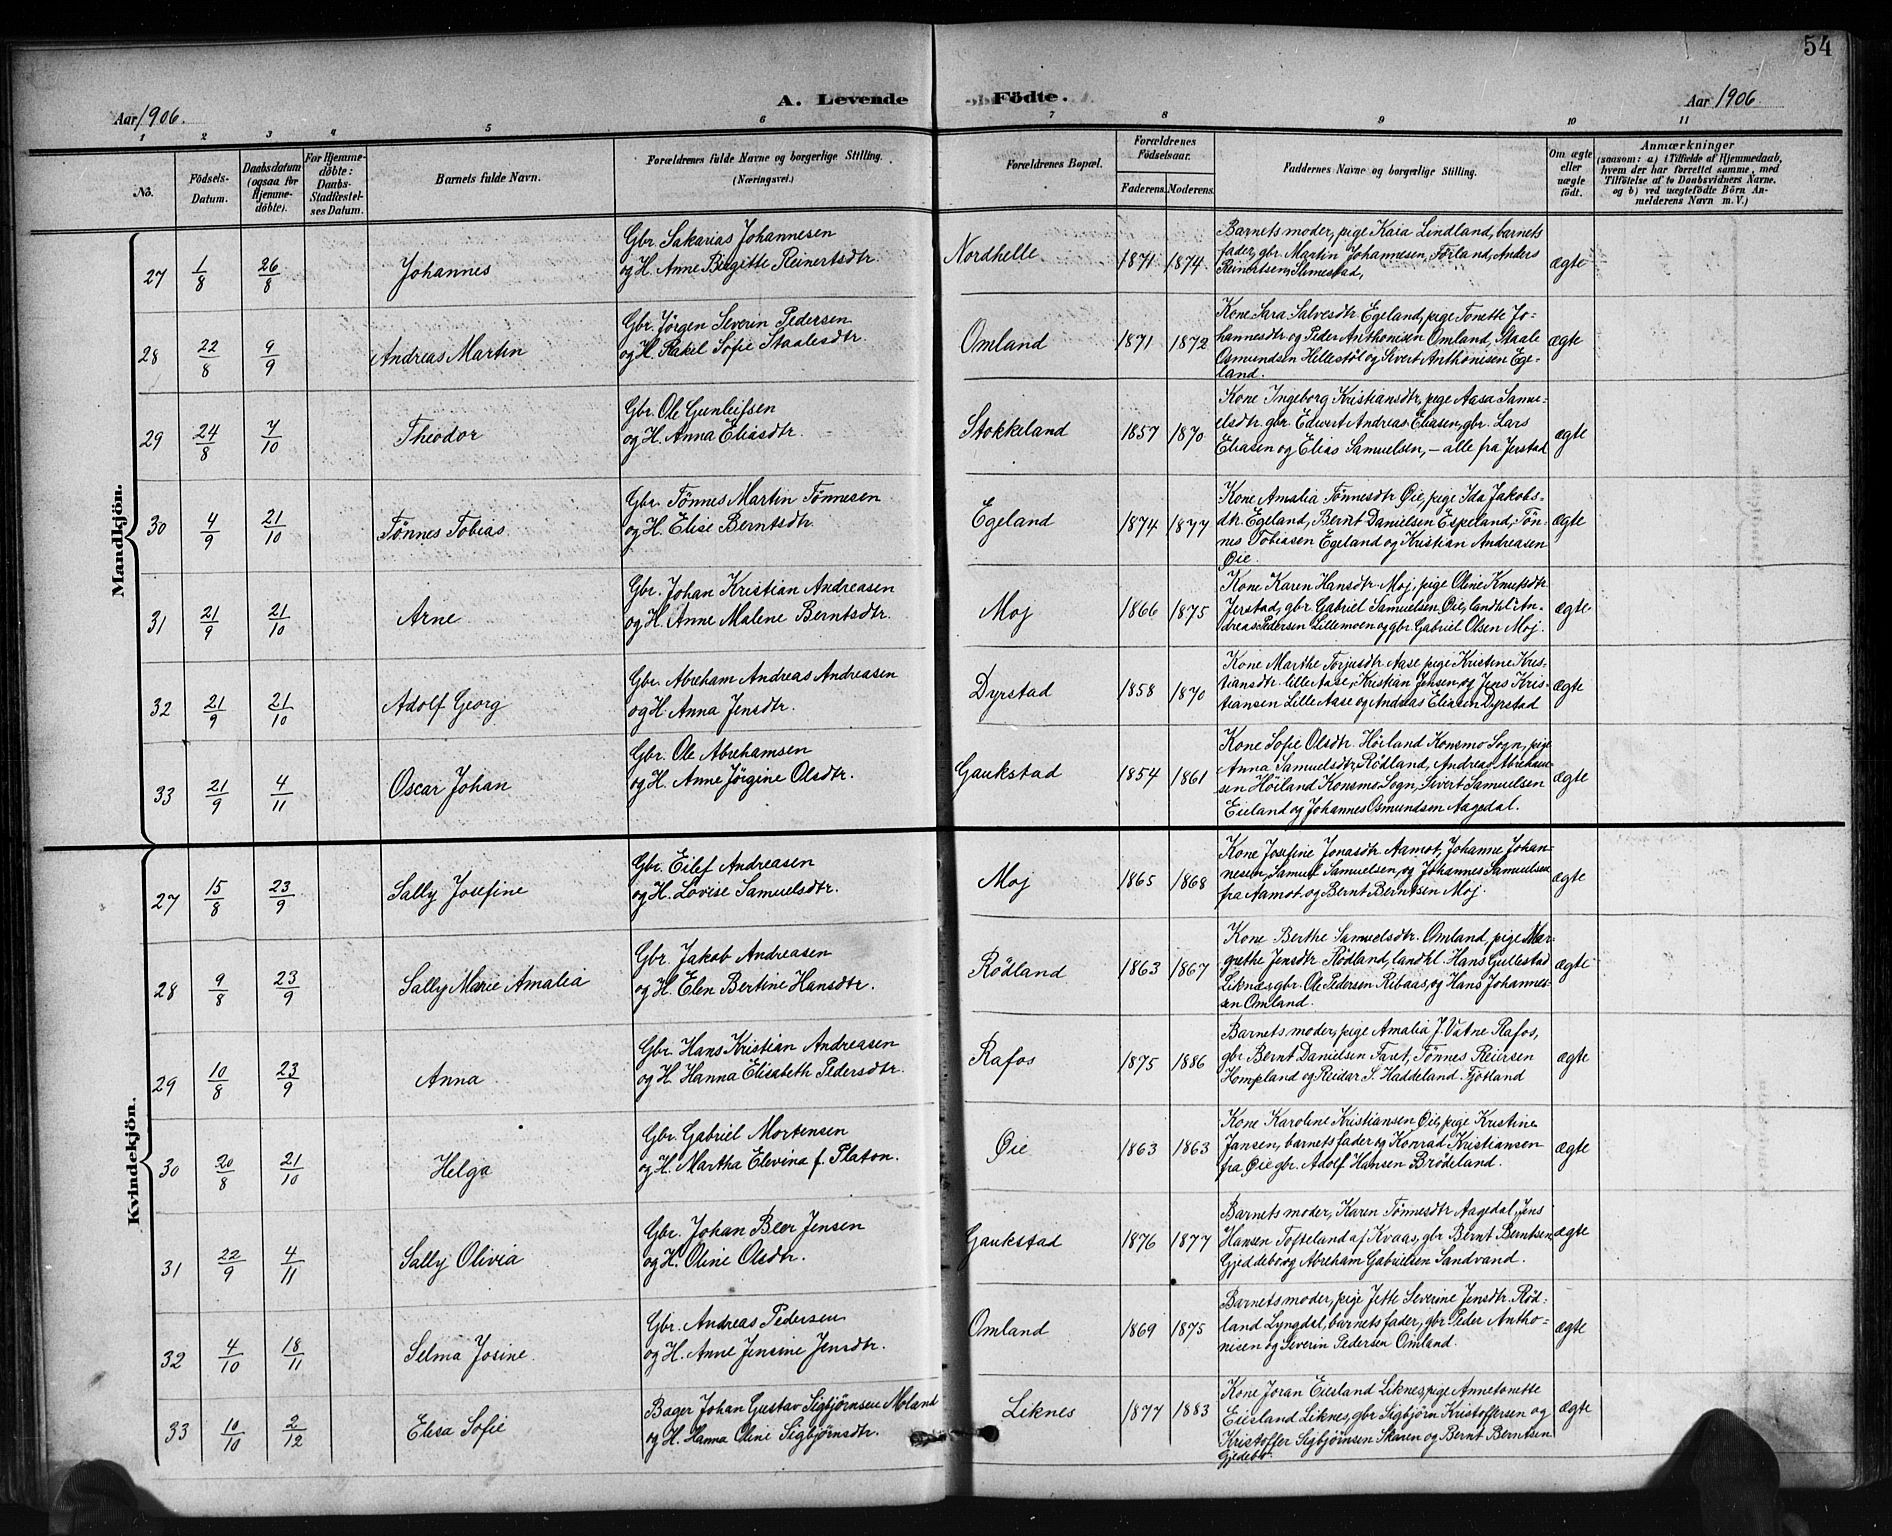 54
Aar 1906.
A. Levende Födte.
Aar 1906
1 2 3 4 5 6 7 8 9 10 11
No.
Födsels-Datum.
Daabsdatum (ogsaa for Hjemmedöbte).
For Hjemmedöbte: Daabs-Stadfæstelses Datum.
Barnets fulde Navn.
Forældrenes fulde Navne og borgerlige Stilling.
(Næringsvei.)
Forældrenes Bopæl.
Forældrenes Födselsaar.
Faderens. Moderens.
Faddernes Navne og borgerlige Stilling.
Om ægte eller uægte födt.
Anmærkninger
(saasom: a) i Tilfælde af Hjemmedaab, hvem der har forrettet samme, med Tilföielse af to Daabsvidners Navne. og b) ved uægtefödte Börn Anmelderens Navn m. V.)
Mandkjön.
27 1/8 26/8 Johannes
Gbr. Sakarias Johannesen
og H. Anne Birgitte Reinertsdtr
Nordhelle 1871 1874
Barnets moder, pige Kaia Lindland, barnets
fader, gbr. Martin Johannesen, Förland, Anders
Reinertsen, Slimestad,
ægte
28 22/8 9/9 Andreas Martin
Gbr. Jörgen Severin Pedersen
og H. Rakel Sofie Staalesdtr.
Omland 1871 1872
Kone Sara Salvesdtr Egeland, pige Tonette Jo-
hannesdtr og Peder Anthonisen Omland, Staale
Osmundsen Hillestöl og Sivert Anthonisen Ege-
land.
ægte
29 24/8 7/10 Theodor
Gbr. Ole Gunleifsen
og H. Anna Eliasdtr.
Stokkeland 1857 1870
Kone Ingeborg Kristiansdtr, pige Aasa Samu-
elsdtr, gbr. Edvert Andreas Eliasen, gbr. Lars
Eliasen og Elias Samuelsen, – alle fra Jerstad
ægte
30 4/9 21/10 Tönnes Tobias.
Gbr. Tönnes Martin Tönnesen
og H. Elise Berntsdtr.
Egeland 1874 1877
Kone Amalia Tönnesdtr Øie, pige Ida Jakobs-
dtr. Egeland, Bernt Danielsen Espeland, Tön-
nes Tobiasen Egeland og Kristian Andreasen
Øie.
ægte
31 21/9 21/10 Arne
Gbr. Johan Kristian Andreasen
og H. Anne Malene Berntsdtr.
Moj 1866 1875
Kone Karen Hansdtr. Moj, pige Oline Knutsdtr.
Jerstad, gbr. Gabriel Samuelsen, Øie, landhl. An-
dreas Pedersen Lillemoen og gbr. Gabriel Olsen Moj.
ægte
32 21/9 21/10 Adolf Georg
Gbr. Abreham Andreas Andreasen
og H. Anna Jensdtr.
Dyrstad 1858 1870
Kone Marthe Torjusdtr Aase, pige Kristine Kris-
tiansdtr lille Aase, Kristian Jensen og Jens Kris-
tiansen Lille Aase og Andreas Eliasen Dyrstad
ægte
33 21/9 4/11 Oscar Johan
Gbr. Ole Abrehamsen
og H. Anne Jörgine Olsdtr.
Gaukstad 1854 1861
Kone Sofie Olsdtr. Höiland Konsmo Sogn, pige
Anna Samuelsdtr Rödland, Andreas Abreham-
sen Höiland Konsmo Sogn, Sivert Samuelsen
Eieland og Johannes Osmundsen Aagedal.
ægte
Kvindekjön.
27 15/8 23/9 Sally Josefine
Gbr. Eilef Andreasen
og H. Lovise Samuelsdtr.
Moj 1865 1868
Kone Josefine Jonasdtr Aamot, Johanne Johan-
nesen, Samuel Samuelsen, og Johannes Samuelsen
fra Aamot og Bernt Berntsen Moj.
ægte
28 9/8 23/9 Sally Marie Amalia
Gbr. Jakob Andreasen
og H. Elen Bertine Hansdtr.
Rödland 1863 1867
Kone Berthe Samuelsdtr. Omland, pige Mar-
grethe Jensdtr Rödland, landhl. Hans Gullestad
Liknes, gbr. Ole Pedersen Ribaas, og Hans Johannes-
sen Omland.
ægte
29 10/8 23/9 Anna
Gbr. Hans Kristian Andreasen
og H. Hanna Elisabeth Pedersdtr.
Rafos 1875 1886
Barnets moder, pige Amalia J. Vatne Rafos,
gbr Bernt Danielsen Faret, Tönnes Reiersen
Hompland og Reidar S. Haddeland. Fjotland
ægte
30 20/8 21/10 Helga
Gbr. Gabriel Mortensen
og H. Martha Elevina f. Platon.
Øie 1863 1863
Kone Karoline Kristiansen Øie, pige Kristine
Jansen, barnets fader og Konrad Kristiansen
fra Øie gbr. Adolf Hansen Brödeland.
ægte
31 22/9 4/11 Sally Olivia
Gbr. Johan Beer Jensen
og H. Oline Olsdtr.
Gaukstad 1876 1877
Barnets moder, Karen Tönnesdtr Aagedal, Jens
Hansen Tofteland af Kvaas, gbr Bernt Berntsen
Gjeddebo og Abreham Gabrielsen Sandvand.
ægte
32 4/10 18/11 Selma Josine.
Gbr. Andreas Pedersen
og H. Anne Jensine Jensdtr.
Omland 1869 1875
Barnets moder, pige Jette Severine Jensdtr. Röd-
land Lyngdal, barnets fader, gbr Peder Antho-
nisen og Severin Pedersen Omland.
ægte
33 10/10 2/12 Elisa Sofie
Bager Johan Gustav Sigbjörnsen Moland
og H. Hanna Oline Sigbjörnsdtr.
Liknes 1877 1883
Kone Joran Eiesland Liknes, pige Annetonette
Eiesland Liknes, gbr Sigbjörn Kristoffersen og
Kristoffer Sigbjörnsen Skaren og Bernt Berntsen
Gjedebo.
ægte